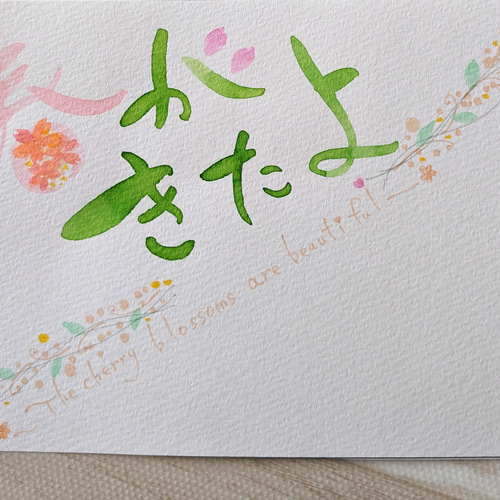 春が
きたよ
The cherry blossoms are beautiful